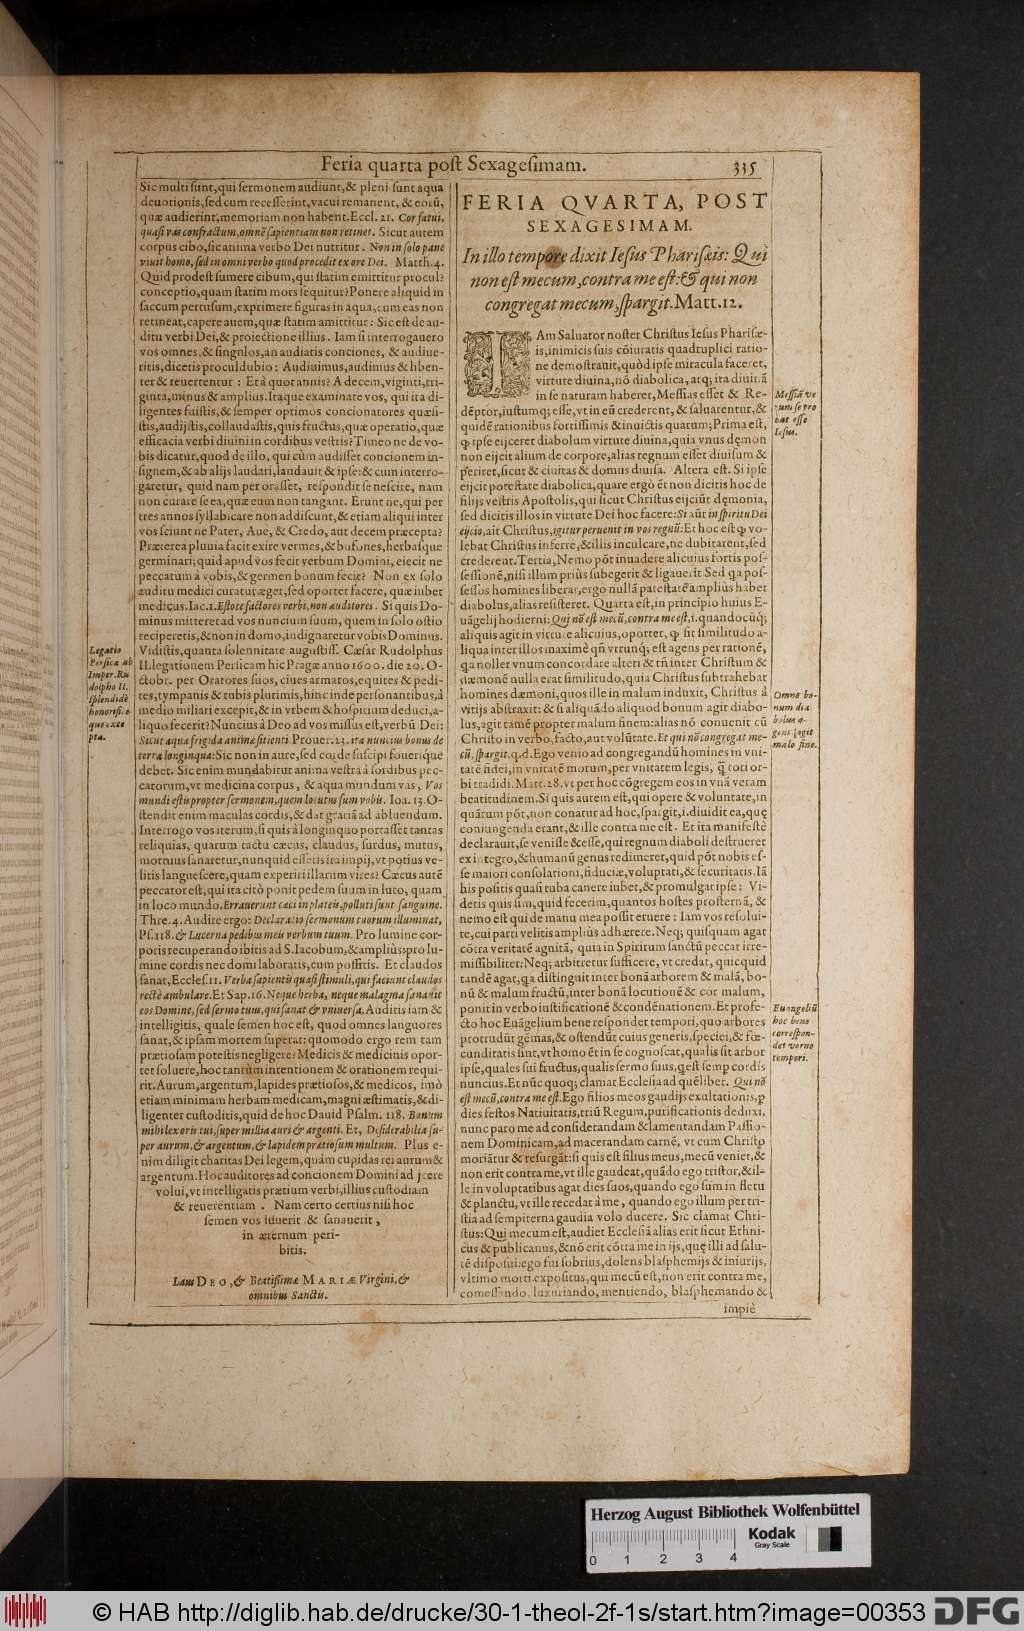 Feria quarta post Sexagesimam. 335
Sic multi sunt, qui sermonem audiunt, & pleni sunt aqua
deuotionis, sed cum recesserint, vacui remanent, & eorũ,
quæ audierint, memoriam non habent. Eccl. 21. Cor fatui,
quasi vas confractum, omnẽ sapientiam non retinet. Sicut autem
corpus cibo, sic anima verbo Dei nutritur. Non in solo pane
viuit homo, sed in omni verbo quod procedit ex ore Dei. Matth. 4.
Quid prodest sumere cibum, qui statim emittitur procul?
conceptio, quam statim mors sequitur? Ponere aliquid in
saccum pertusum, exprimere figuras in aqua, cum eas non
retineat, capere auem, quæ statim amittitur: Sic est de au-
ditu verbi Dei, & proiectione illius. Iam si interrogauero
vos omnes, & singulos, an audiatis conciones, & audiue-
ritis, dicetis proculdubio: Audiuimus, audimus & liben-
ter & reuertentur: Et à quot annis? A decem, viginti, tri-
ginta, minus & amplius. Itaque examinate vos, qui ita di-
ligentes fuistis, & semper optimos concionatores quæsi-
stis, audijstis, collaudastis, quis fructus, quæ operatio, quæ
efficacia verbi diuini in cordibus vestris? Timeo ne de vo-
bis dicatur, quod de illo, qui cùm audisset concionem in-
signem, & ab alijs laudari, laudauit & ipse: & cum interro-
garetur, quid nam per orasset, respondit se nescire, nam
non curare se ea, quæ eum non tangant. Erunt ne, qui per
tres annos syllabicare non addiscunt, & etiam aliqui inter
vos sciunt ne Pater, Aue, & Credo, aut decem præcepta?
Præterea pluuia facit exire vermes, & bufones, herbasque
germinari; quid apud vos fecit verbum Domini, eiecit ne
peccatum à vobis, & germen bonum fecit? Non ex solo
auditu medici curatur æger, sed oportet facere, quæ iubet
medicus. Iac. 1. Estote factores verbi, non auditores. Si quis Do-
minus mitteret ad vos nuncium suum, quem in solo ostio
reciperetis, & non in domo, indignaretur vobis Dominus.
Vidistis, quanta solennitate augustiss. Cæsar Rudolphus
II. legationem Persicam hic Pragæ anno 1600. die 20. O-
ctobr. per Oratores suos, ciues armatos, equites & pedi-
tes, tympanis & tubis plurimis, hinc inde personantibus, à
medio miliari excepit, & in vrbem & hospitium deduci, a-
liquo fecerit? Nuncius à Deo ad vos missus est, verbũ Dei:
Sicut aqua frigida animæ sitienti Prouer. 25. ita nuncius bonus de
terra longinqua: Sic non in aure, sed corde suscipi fouerique
debet. Sic enim mundabitur anima vestra à sordibus pec-
catorum, vt medicina corpus, & aqua mundum vas, Vos
mundi estis propter sermonem, quem locutus sum vobis. Ioa. 13. O-
stendit enim maculas cordis, & dat gratiã ad abluendum.
Interrogo vos iterum, si quis à longinquo portasset tantas
reliquias, quarum tactu cæcus, claudus, surdus, mutus,
mortuus sanaretur, nunquid essetis ita impij, vt potius ve-
litis languescere, quam experiri illarum vires? Cæcus autẽ
peccator est, qui ita citò ponit pedem suum in luto, quam
in loco mundo. Errauerunt cæci in plateis, polluti sunt sanguine.
Thre. 4. Audite ergo: Declaratio sermonum tuorum illuminat,
Ps. 118. & Lucerna pedibus meis verbum tuum. Pro lumine cor-
poris recuperando ibitis ad S. Iacobum, & amplius: pro lu-
mine cordis nec domi laboratis, cum possitis. Et claudos
sanat, Eccles. 11. Verba sapientis quasi stimuli, qui faciunt claudos
rectè ambulare. Et Sap. 16. Neque herba, neque malagma sanauit
eos Domine, sed sermo tuus, qui sanat & vniuersa. Auditis iam &
intelligitis, quale semen hoc est, quod omnes languores
sanat, & ipsam mortem superat: quomodo ergo rem tam
prætiosam potestis negligere? Medicis & medicinis opor-
tet soluere, hoc tantùm intentionem & orationem requi-
rit. Aurum, argentum, lapides prætiosos, & medicos, imò
etiam minimam herbam medicam, magni æstimatis, & di-
ligenter custoditis, quid de hoc Dauid Psalm. 118. Bonum
mihi lex oris tui, super millia auri & argenti. Et, Desiderabilia su-
per aurum, & argentum, & lapidem prætiosum multum. Plus e-
nim diligit charitas Dei legem, quàm cupidas rei aurum &
argentum. Hoc auditores ad concionem Domini adjcere
volui, vt intelligatis prætium verbi, illius custodiam
& reuerentiam. Nam certo certius nisi hoc
semen vos iuuerit & sanauerit,
in æternum peri-
bitis.
Laus DEO, & Beatissimæ MARIÆ Virgini, &
omnibus Sanctis.
Legatio
Persicæ ab
Imper. Ru
dolpho II.
splendidè
honorisi.e
que exce
pta.
FERIA QVARTA, POST
SEXAGESIMAM.
In illo tempore dixit Iesus Pharisæis: Qui
non est mecum, contra me est: & qui non
congregat mecum, spargit. Matt. 12.
IAm Saluator noster Christus Iesus Pharisæ-
is, inimicis suis cõiuratis quadruplici ratio-
ne demostrauit, quòd ipse miracula faceret,
virtute diuina, nõ diabolica, atq; ita diuitã
in se naturam haberet, Messias esset & Re-
dẽptor, iustumq; esse, vt in eũ crederent, & saluarentur, &
quidẽ rationibus fortissimis & inuictis quatuor; Prima est,
ꝙ ipse eijceret diabolum virtute diuina, quia vnus dęmon
non eijcit alium de corpore, alias regnum esset diuisum &
periret, sicut & ciuitas & domus diuisa. Altera est. Si ipse
eijcit potestate diabolica, quare ergò ẽt non dicitis hoc de
filijs vestris Apostolis, qui sicut Christus eijciũt dęmonia,
sed dicitis illos in virtute Dei hoc facere: Si aũt in spiritu Dei
eijcio, ait Christus, igitur peruenit in vos regnũ: Et hoc est ꝙ vo-
lebat Christus inferre, & illis inculcare, ne dubitarent, sed
crederent. Tertia, Nemo põt inuadere alicuius fortis pos-
sessionẽ, nisi illum priùs subegerit & ligauerit. Sed qa pos-
sessos homines liberat, ergo nullã potestatẽ ampliùs habet
diabolus, alias resisteret. Quarta est, in principio huius E-
uãgelij hodierni: Qui nõ est mecũ, contra me est, i. quandocũq;
aliquis agit in virtute alicuius, oportet, ꝙ sit similitudo a-
liqua inter illos maximè qñ vtrunq; est agens per rationẽ,
qa nollet vnum concordare alteri & tñ inter Christum &
dæmonẽ nulla erat similitudo, quia Christus subtrahebat
homines dæmoni, quos ille in malum induxit, Christus à
vitijs abstraxit: & si aliquãdo aliquod bonum agit diabo-
lus, agit tamẽ propter malum finem: alias nõ conuenit cũ
Christo in verbo, facto, aut volũtate. Et qui nõ congregat me-
cũ, spargit. q.d. Ego venio ad congregandũ homines in vni-
tatẽ fidei, in vnitatẽ morum, per vnitatem legis, q̃ toti or-
bi tradidi. Matt. 28. vt per hoc cõgregem eos in vnã veram
beatitudinem. Si quis autem est, qui opere & voluntate, in
quãtum põt, non conatur ad hoc, spargit, i. diuidit ea, quę
coniungenda erant, & ille contra me est. Et ita manifestè
declarauit, se venisse & esse, qui regnum diaboli destrueret
ex integro, & humanũ genus redimeret, quid põt nobis es-
se maiori consolationi, fiduciæ, voluptati, & securitatis. Iã
his positis quasi tuba canere iubet, & promulgat ipse: Vi-
detis quis sim, quid fecerim, quantos hostes prosternã, &
nemo est qui de manu mea possit eruere: Iam vos resolui-
te, cui parti velitis ampliùs adhærere. Neq; quisquam agat
cõtra veritatẽ agnitã, quia in Spiritum sanctũ peccat irre-
missibiliter: Neq; arbitretur sufficere, vt credat, quicquid
tandẽ agat, qa distinguit inter bonã arborem & malã, bo-
nũ & malum fructũ, inter bonã locutionẽ & cor malum,
ponit in verbo iustificationẽ & condẽnationem. Et profe-
cto hoc Euãgelium bene respondet tempori, quo arbores
protrudũt gẽmas, & ostendũt cuius generis, speciei, & fœ-
cunditatis sint, vt homo ẽt in se cognoscat, qualis sit arbor
ipse, quales sui fructus, qualis sermo suus, q est semp cordis
nuncius. Et nũc quoq; clamat Ecclesia ad quẽlibet. Qui nõ
est mecũ, contra me est. Ego filios meos gaudijs exultationis, p
dies festos Natiuitatis, triũ Regum, purificationis deduxi,
nunc paro me ad considerandam & lamentandam Passio-
nem Dominicam, ad macerandam carnẽ, vt cum Christo
moriãtur & resurgãt: si quis est filius meus, mecũ veniet, &
non erit contra me, vt ille gaudeat, quãdo ego tristor, & il-
le in voluptatibus agat dies suos, quando ego sum in fletu
& planctu, vt ille recedat à me, quando ego illum per tri-
stia ad sempiterna gaudia volo ducere. Sic clamat Chri-
stus: Qui mecum est, audiet Ecclesiã alias erit sicut Ethni-
cus & publicanus, & nõ erit cõtra me in ijs, quę illi ad salu-
tẽ disposui: ego fui sobrius, dolens blasphemijs & iniurijs,
vltimo morti expositus, qui mecũ est, non erit contra me,
comessando, luxuriando, mentiendo, blasphemando &
impiè
Messiã ve
rum se pro
bat esse
Iesus.
Omne bo-
num dia
bolus a-
gens agit
malo fine.
Euangeliũ
hoc bene
correspon-
det verno
tempori.
Herzog August Bibliothek Wolfenbüttel
Kodak
Gray Scale
0 1 2 3 4
© HAB http://diglib.hab.de/drucke/30-1-theol-2f-1s/start.htm?image=00353 DFG